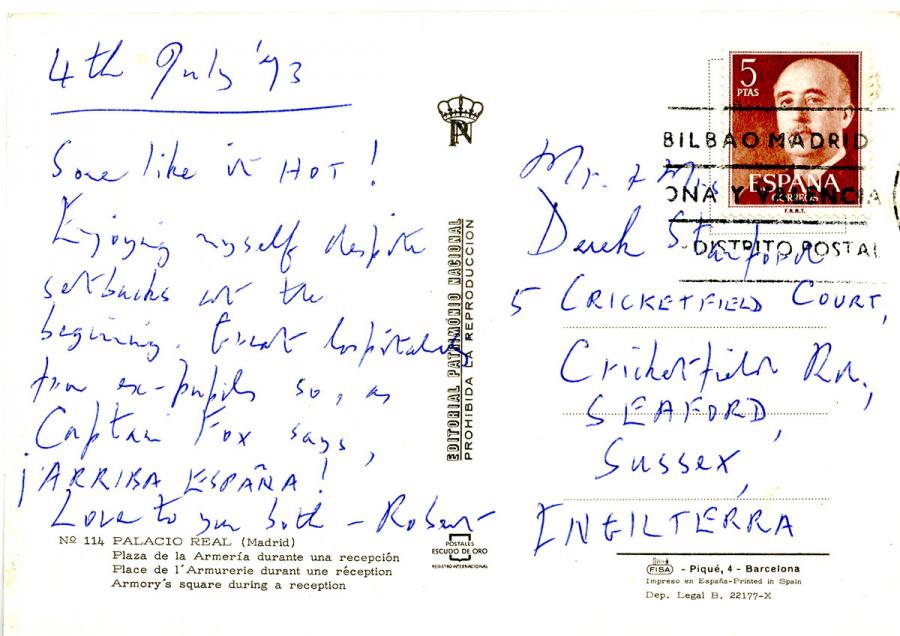 4th July '73
Some like it HOT!
Enjoying myself despite
setbacks at the
beginning. Great hospitality
from ex-pupils so, as
Captain Fox says,
¡ARRIBA ESPAÑA!
Love to you both - Robert
Nº 114 PALACIO REAL (Madrid)
Plaza de la Armería durante una recepción
Place de l'Armurerie durant une réception
Armory's square during a reception
EDITORIAL PATRIMONIO NACIONAL
PROHIBIDA LA REPRODUCCION
POSTALES
ESCUDO DE ORO
REGISTRO INTERNACIONAL
5
PTAS
ESPAÑA
CORREOS
F.N.M.T.
BILBAO MADRID
ONA Y VALENCIA
DISTRITO POSTAL
Mr. & Mrs
Derek Stanford
5 CRICKETFIELD COURT,
Cricketfield Rd.,
SEAFORD,
Sussex,
INGILTERRA
FISA - Piqué, 4 - Barcelona
Impreso en España-Printed in Spain
Dep. Legal B. 22177-X